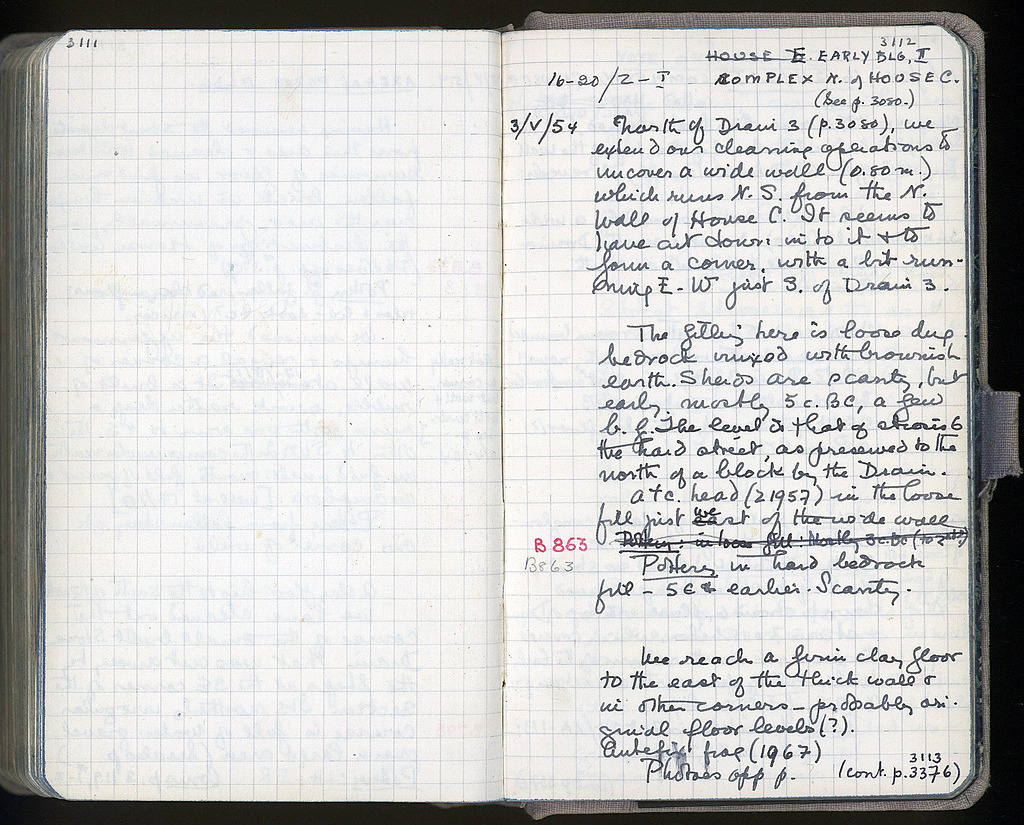 3111
3112
HOUSE E. EARLY BLG, II
16-20/Z-I COMPLEX N. of HOUSE C.
(See p. 3080.)
3/V/54 North of Drain 3 (p. 3080), we
extend our cleaning operations to
uncover a wide wall (0.80 m.)
which runs N. S. from the N.
wall of House C. It seems to
have cut down in to it & to
form a corner, with a bit run-
ning E-W just S. of Drain 3.
The filling here is loose dug
bedrock mixed with brownish
earth. Sherds are scanty, but
early, mostly 5 c. BC, a few
b. f. The level is that of strosis 6
the hard street, as preserved to the
north of a block by the Drain.
A tc. head (21957) in the loose
fill just west of the wide wall
Pottery: in loose fill: Mostly 5c. BC (to 2nd?)
B 863 Pottery in hard bedrock
B863
fill - 5c & earlier. Scanty.
We reach a firm clay floor
to the east of the thick wall &
in other corners - probably ori-
ginal floor levels (?).
Antefix frag (1967)
Photoes opp p. 3113
(cont. p. 3376)